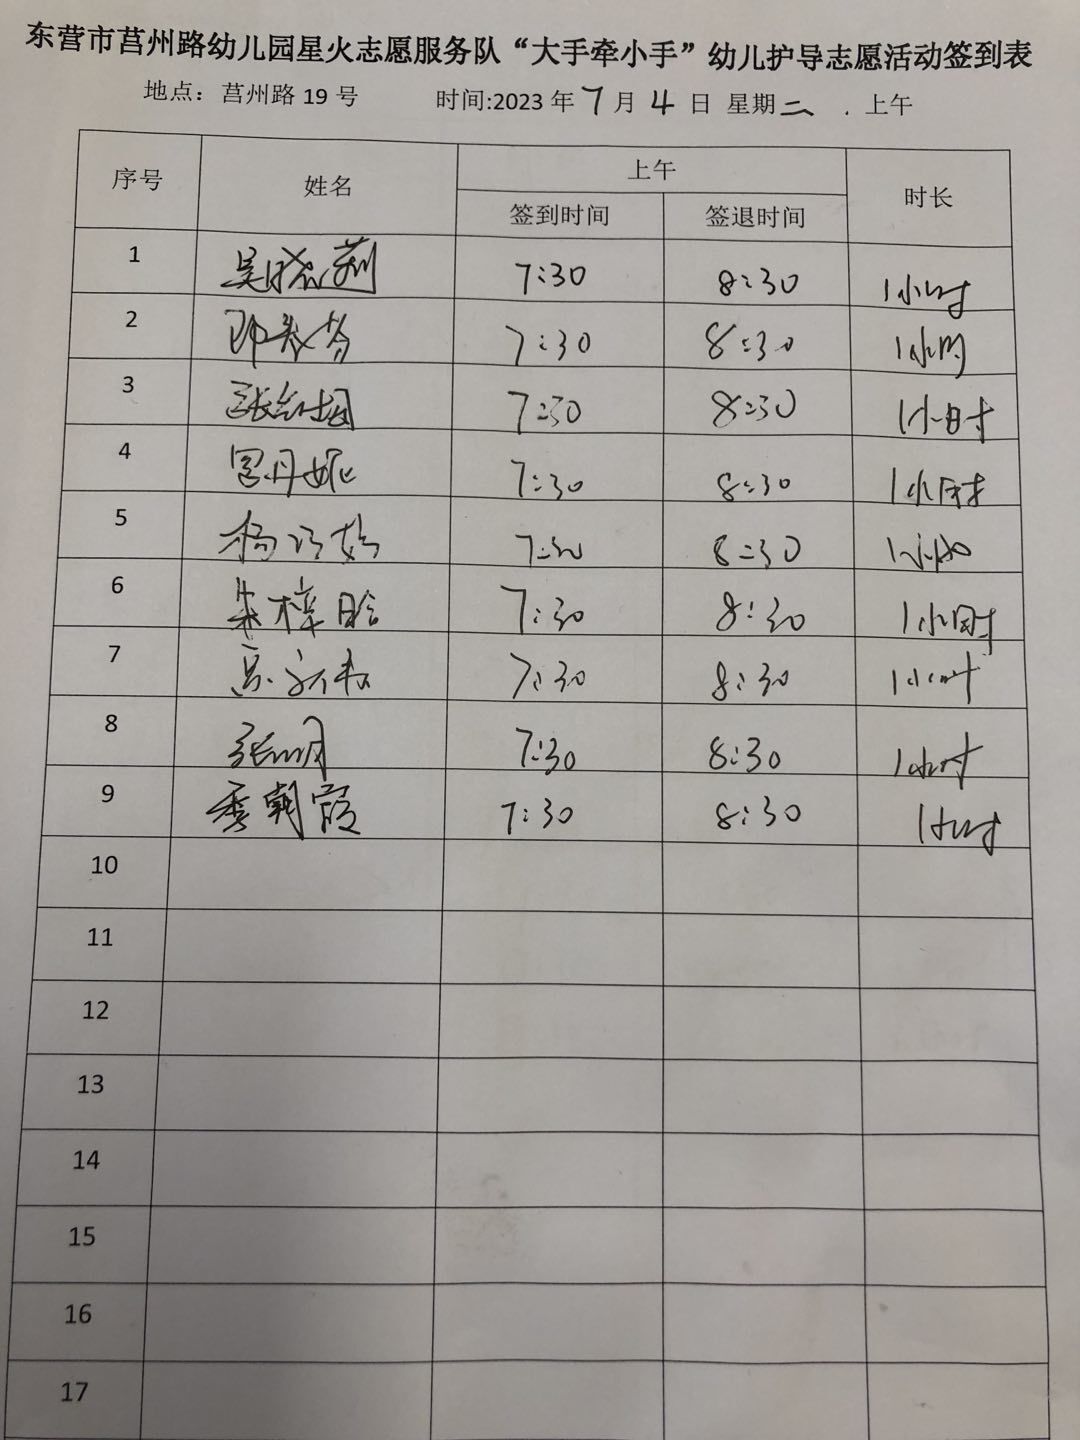 东营市莒州路幼儿园星火志愿服务队“大手牵小手”幼儿护导志愿活动签到表
地点：莒州路 19 号 时间:2023 年 7 月 4 日 星期二 . 上午
序号 姓名 上午 时长
签到时间 签退时间
1 吴晓莉 7:30 8:30 1小时
2 7:30 8:30 1小时
3 张 7:30 8:30 1小时
4 宫丹妮 7:30 8:30 1小时
5 杨 7:30 8:30 1小时
6 朱梓晗 7:30 8:30 1小时
7 7:30 8:30 1小时
8 张明月 7:30 8:30 1小时
9 季朝霞 7:30 8:30 1小时
10
11
12
13
14
15
16
17